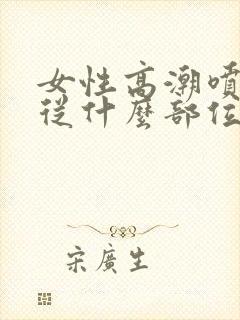 女性高潮噴
從什麼部位
宋廣生